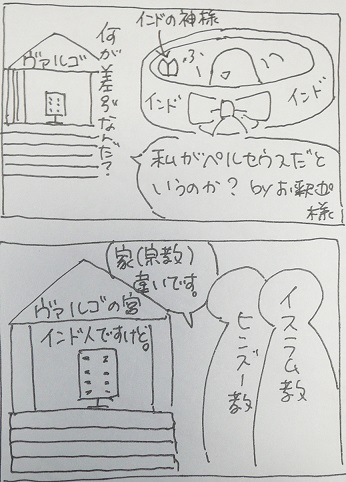 インドの神様
ヴァルゴ
何が差ぷなんだ?
ぷ
い
インド
インド
私がペルセウスだと
いうのか? byお釈迦
様
家(宗教)
違いです。
ヴァルゴの宮
インド人ですけど。
ヒンズー教
イスラム教